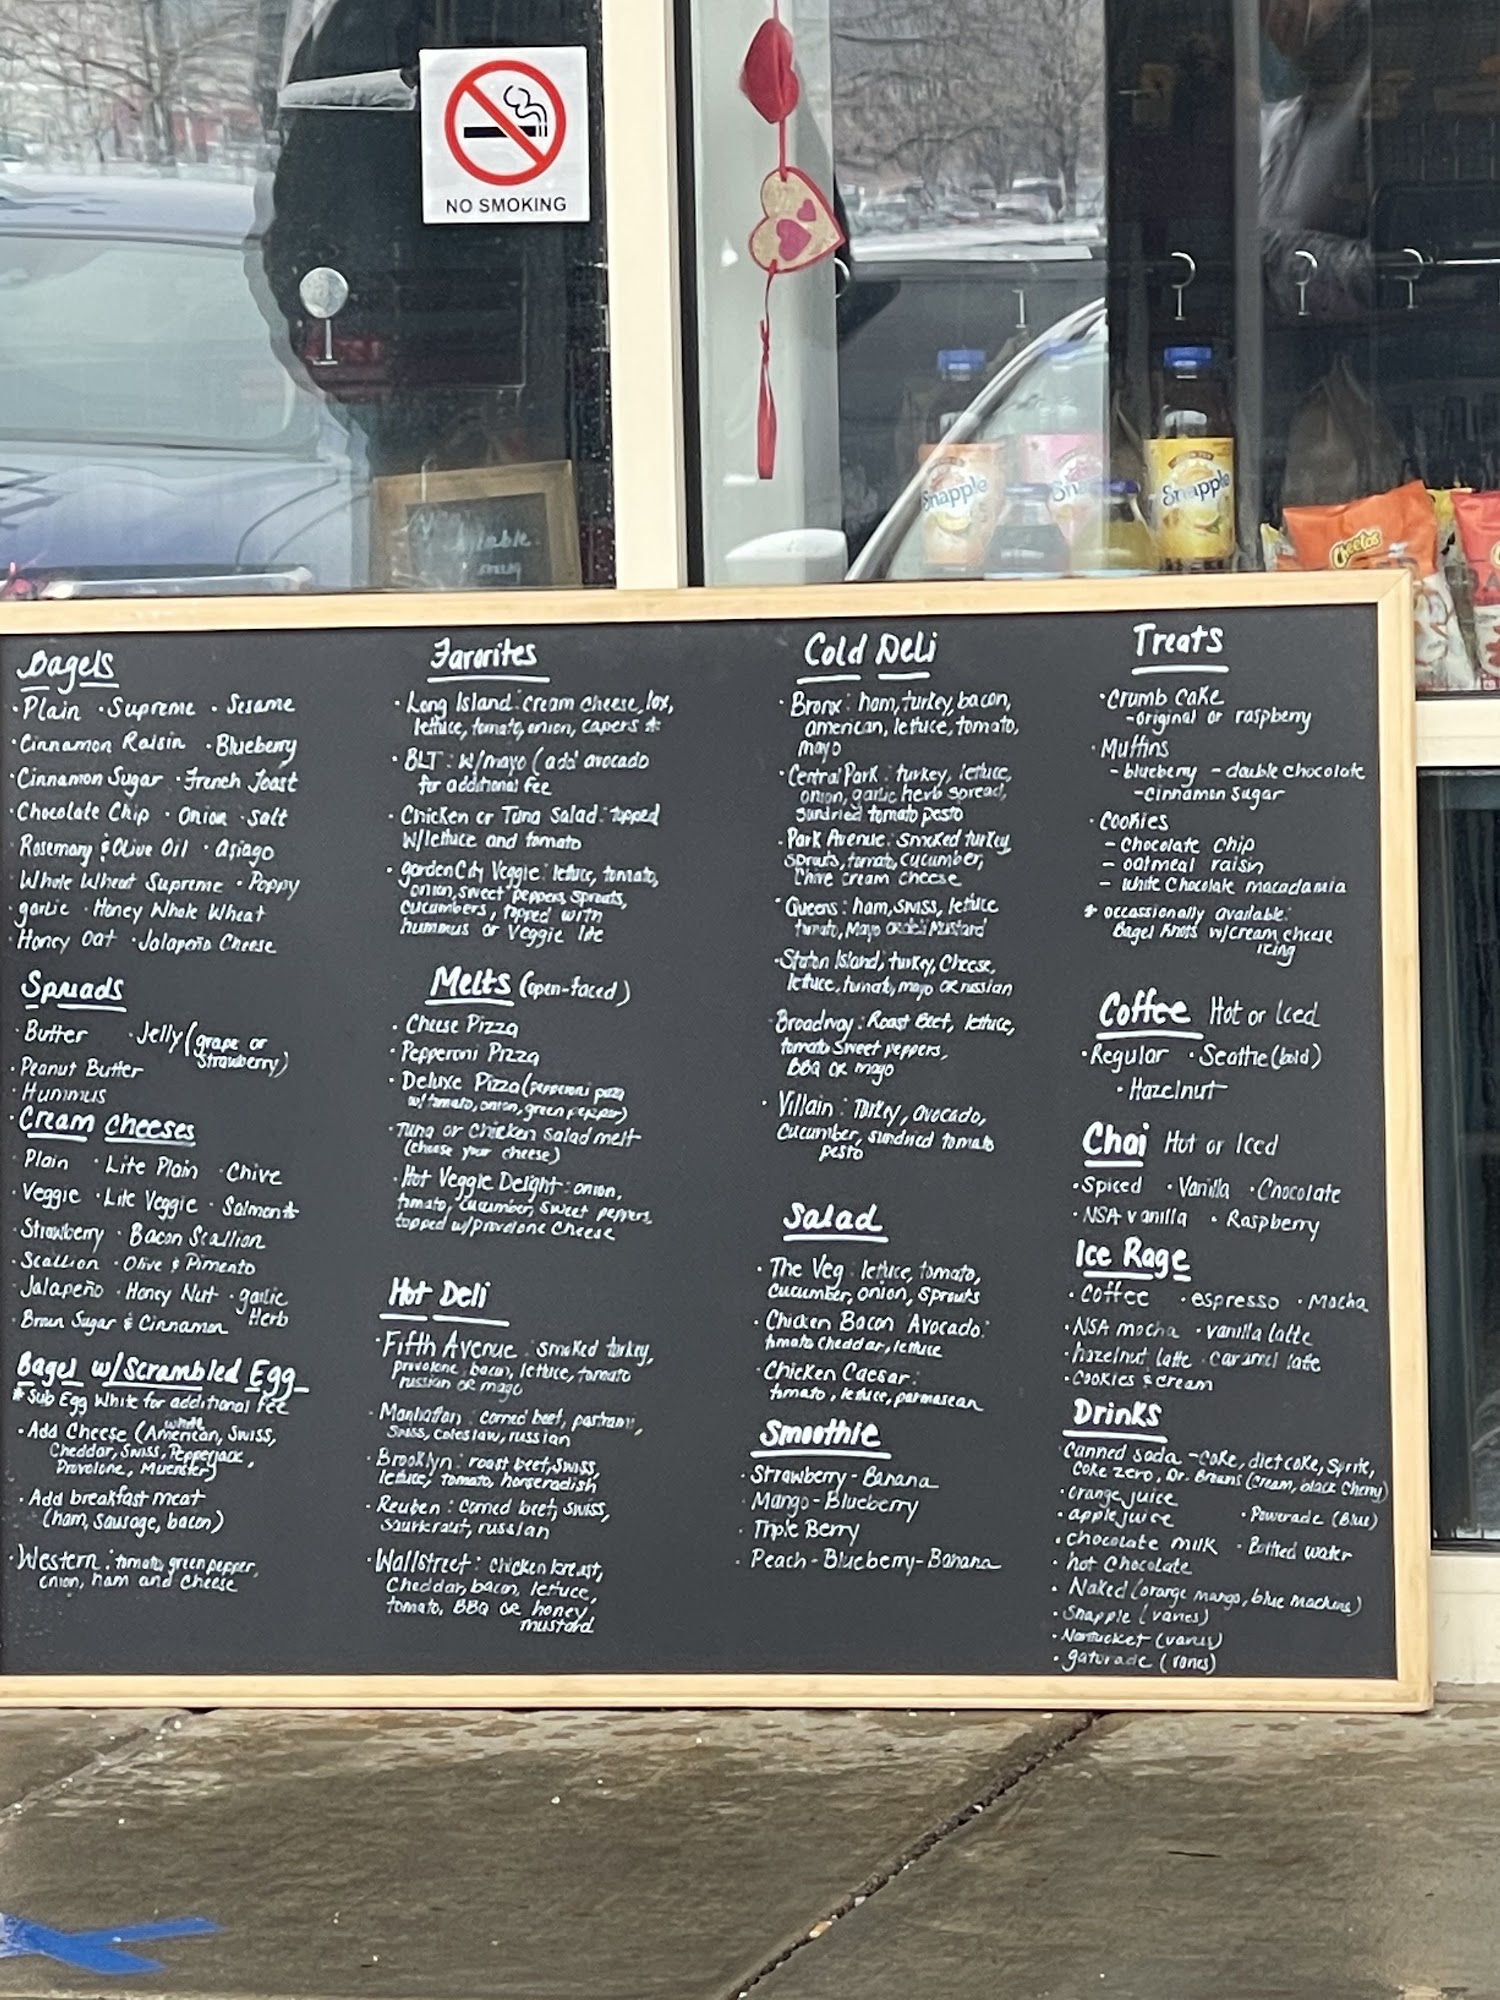 NO SMOKING
Snapple
Snapple
Cheetos
Bagels
· Plain · Supreme · Sesame
· Cinnamon Raisin · Blueberry
· Cinnamon Sugar · French Toast
· Chocolate Chip · Onion · Salt
· Rosemary & Olive Oil · Asiago
· Whole Wheat Supreme · Poppy
· garlic · Honey Whole Wheat
· Honey Oat · Jalapeño Cheese
Spreads
· Butter · Jelly (grape or
strawberry)
· Peanut Butter
· Hummus
· Cream Cheeses
· Plain · Lite Plain · Chive
· Veggie · Lite Veggie · Salmon*
· Strawberry · Bacon Scallion
· Scallion · Olive & Pimento
· Jalapeño · Honey Nut · garlic
Herb
· Brown Sugar & Cinnamon
Bagel w/Scrambled Egg
* Sub Egg White for additional fee
· Add Cheese (White American, Swiss,
Cheddar, Swiss, Pepperjack,
Provolone, Muenster)
· Add breakfast meat
(ham, sausage, bacon)
· Western: tomato, green pepper,
onion, ham and cheese
Favorites
· Long Island: cream cheese, lox,
lettuce, tomato, onion, capers *
· BLT: w/mayo (add avocado
for additional fee
· Chicken or Tuna Salad: topped
w/lettuce and tomato
· garden City Veggie: lettuce, tomato,
onion, sweet peppers, sprouts,
cucumbers, topped with
hummus or Veggie lite
Melts (open-faced)
· Cheese Pizza
· Pepperoni Pizza
· Deluxe Pizza (pepperoni pizza
w/tomato, onion, green pepper)
· Tuna or Chicken Salad melt
(choose your cheese)
· Hot Veggie Delight: onion,
tomato, cucumber, sweet peppers,
topped w/provolone cheese
Hot Deli
· Fifth Avenue: smoked turkey,
provolone, bacon, lettuce, tomato
russian or mayo
· Manhattan: corned beef, pastrami,
Swiss, coleslaw, russian
· Brooklyn: roast beef, swiss,
lettuce, tomato, horseradish
· Reuben: corned beef, swiss,
Saurkraut, russian
· Wallstreet: chicken breast,
Cheddar, bacon, lettuce,
tomato, BBQ or honey
mustard
Cold Deli
· Bronx: ham, turkey, bacon,
american, lettuce, tomato,
mayo
· Central Park: turkey, lettuce,
onion, garlic herb spread,
sundried tomato pesto
· Park Avenue: smoked turkey,
sprouts, tomato, cucumber,
Chive cream cheese
· Queens: ham, swiss, lettuce
tomato, Mayo or deli Mustard
· Staton Island, turkey, Cheese,
lettuce, tomato, mayo or russian
· Broadway: Roast Beef, lettuce,
tomato Sweet peppers,
BBQ or mayo
· Villain: Turkey, avocado,
cucumber, sundried tomato
pesto
Salad
· The Veg: lettuce, tomato,
cucumber, onion, sprouts
· Chicken Bacon Avocado:
tomato cheddar, lettuce
· Chicken Caesar:
tomato, lettuce, parmasean
Smoothie
· Strawberry-Banana
· Mango-Blueberry
· Triple Berry
· Peach-Blueberry-Banana
Treats
· crumb cake
-original or raspberry
· Muffins
- blueberry - double chocolate
-cinnamon sugar
· cookies
- chocolate chip
- oatmeal raisin
- white Chocolate macadamia
* occassionally available:
Bagel Knots w/cream cheese
icing
Coffee Hot or Iced
· Regular · Seattle (bold)
· Hazelnut
Chai Hot or Iced
· Spiced · Vanilla · Chocolate
· NSA vanilla · Raspberry
Ice Rage
· coffee · espresso · Mocha
· NSA mocha · vanilla latte
· hazelnut latte · caramel latte
· cookies & cream
Drinks
Canned soda - coke, diet coke, Sprite,
coke zero, Dr. Browns (cream, black cherry)
· orange juice
· apple juice · Powerade (Blue)
· chocolate milk · Bottled water
· hot chocolate
· Naked (orange mango, blue machine)
· Snapple (varies)
· Nantucket (varies)
· gatorade (varies)